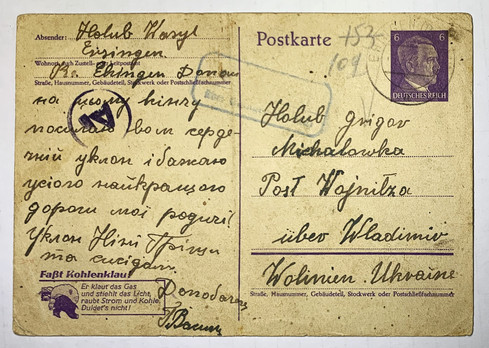 Absender: Holub Wasyl
Ersingen
Wohnort, auch Zustell- und Leitpostamt
Krs. Ehingen Donau
Straße, Hausnummer, Gebäudeteil, Stockwerk oder Postschließfachnummer
на цьому кінчу
посилаю вам серде-
чний уклон і бажаю
усього найкращого
дорогі мої родичі
Уклон Ніні Гріши
та сусідам.
Faßt Kohlenklau!
Er klaut das Gas
und stiehlt das Licht,
raubt Strom und Kohle.
Duldet's nicht!
Postkarte
+53
109
Ai
6 6
DEUTSCHES REICH
Holub Grigor
Michalowka
Post Wojnitza
über Wladimir
Wolinien Ukraine
Straße, Hausnummer, Gebäudeteil, Stockwerk oder Postschließfachnummer